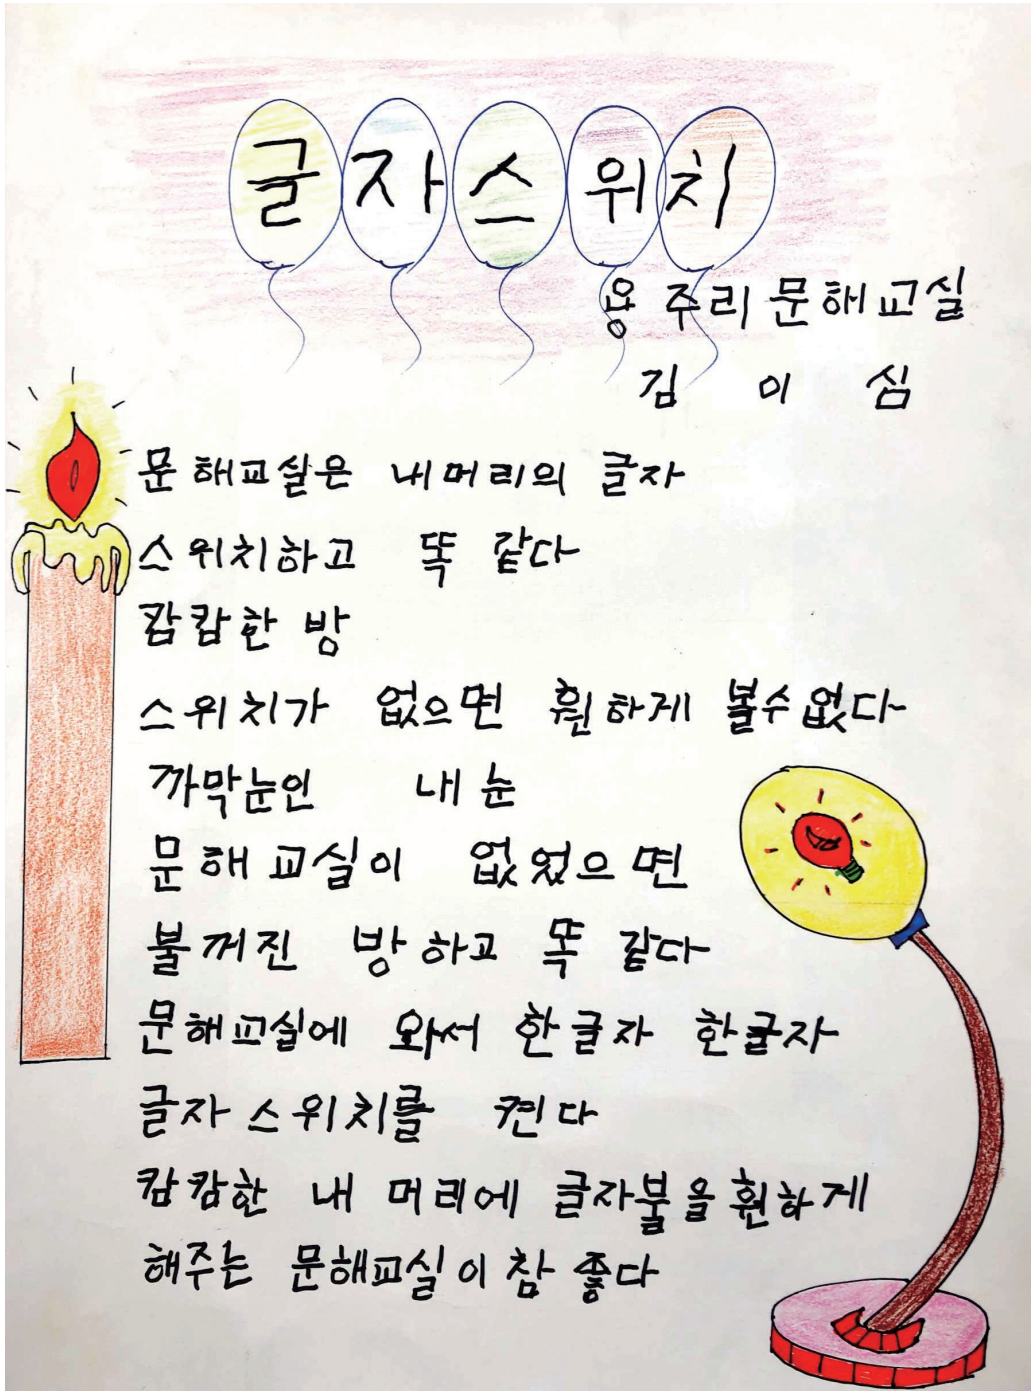 글자스위치
용주리문해교실
김 이 심
문해교실은 내머리의 글자
스위치하고 똑 같다
캄캄한 방
스위치가 없으면 훤하게 볼수없다
까막눈인 내 눈
문해교실이 없었으면
불꺼진 방하고 똑 같다
문해교실에 와서 한글자 한글자
글자스위치를 켠다
캄캄한 내 머리에 글자불을훤하게
해주는 문해교실이참 좋다